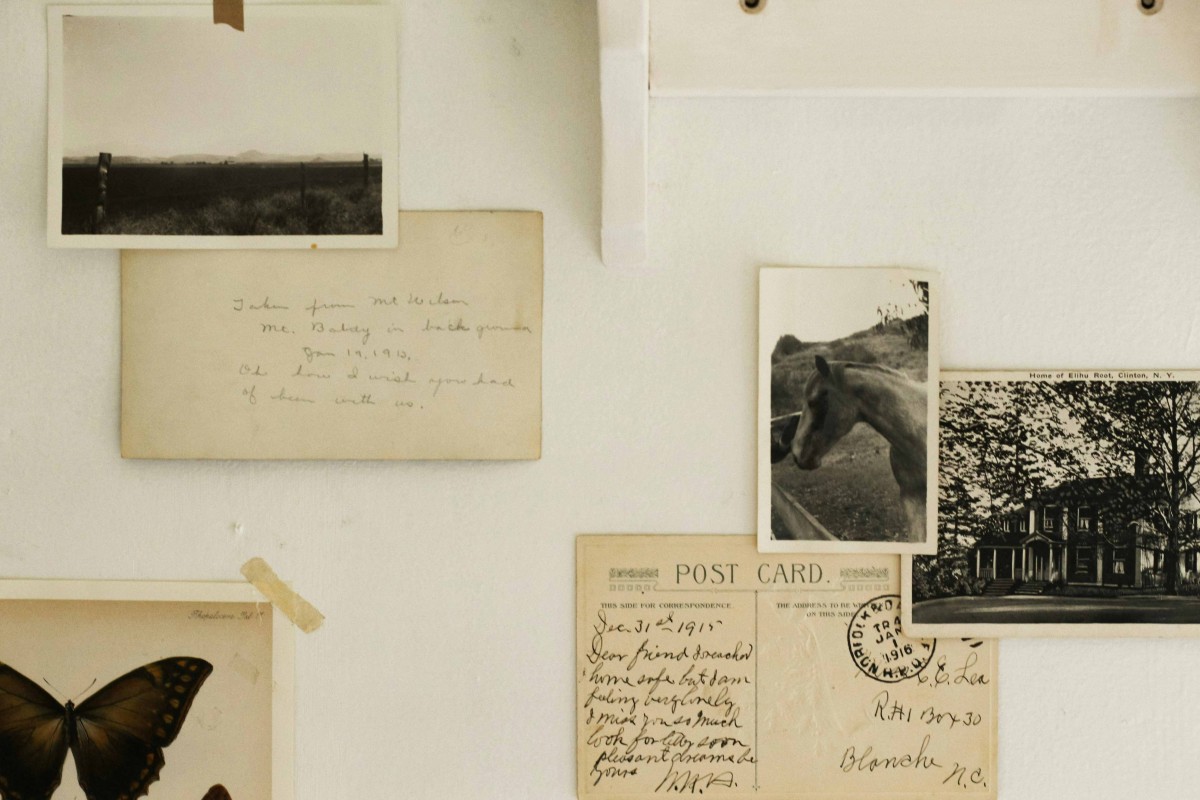 Taken from Mt Wilson
Mt. Baldy in background
Jan 19, 1913.
Oh how I wish you had
of been with us.
Home of Elihu Root, Clinton, N. Y.
POST CARD.
THIS SIDE FOR CORRESPONDENCE
THE ADDRESS TO BE
ON THIS SIDE
Dec. 31st 1915
Dear friend I reached
home safe but I am
feeling very lonely
I miss you so much
look for letter soon
pleasant dreams be
yours
NORFOLK & DA
TRA
JAN
1
1916
R.P.O.
C.E. Lea
R.#1 Box 30
Blanche N.C.